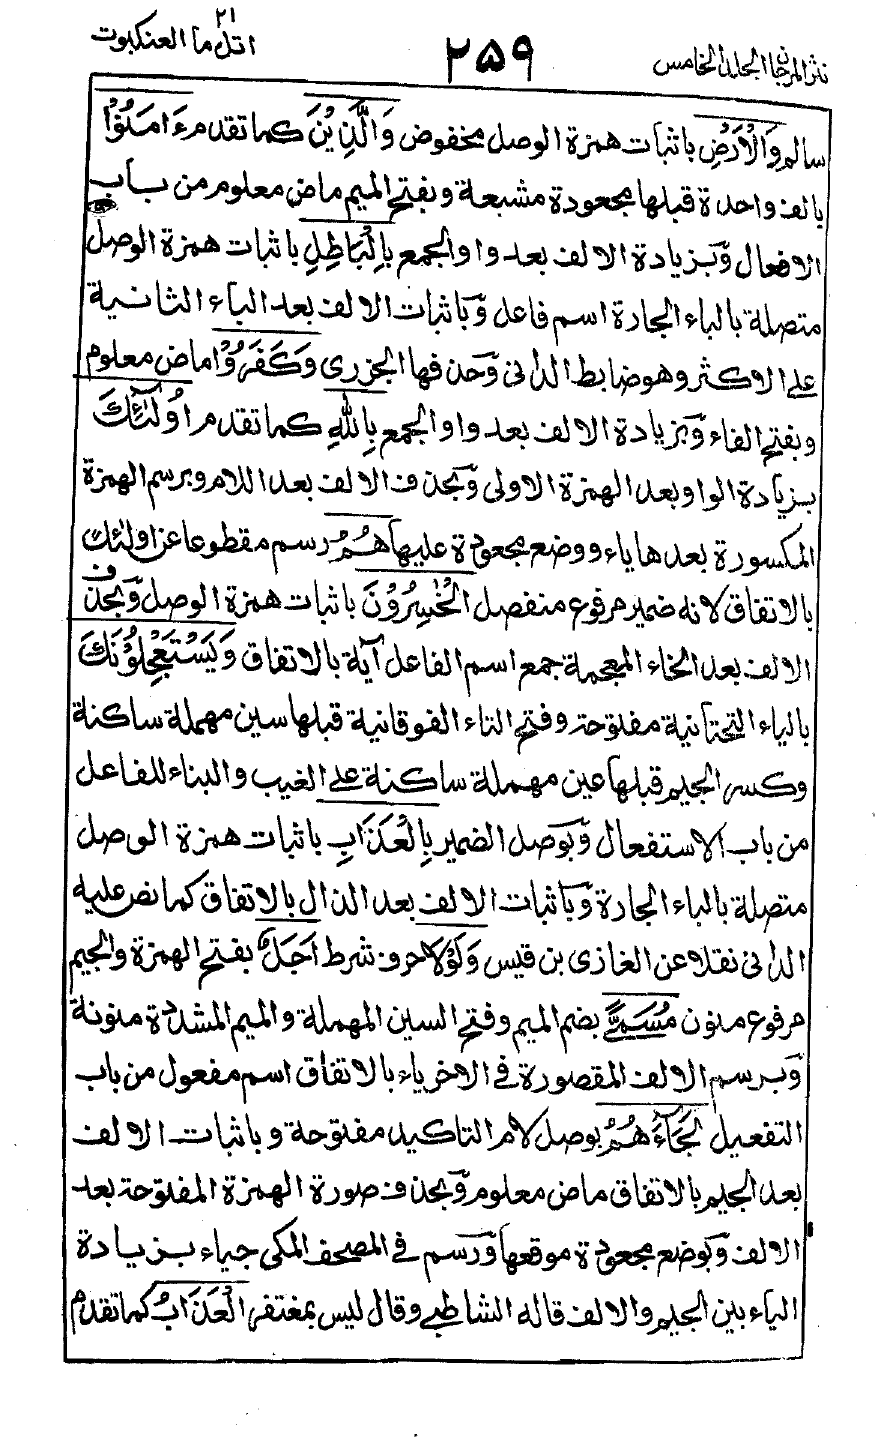 نثر المرجان المجلد الخامس
٢٥٩
اتل ما ٢١ العنكبوت
سالم وَالْاَرْضِ باثبات همزة الوصل مخفوض وَالَّذِيْنَ كما تقدم ءَامَنُوْا
بالف واحدة قبلها مجعودة مشبعة وبفتح الميم ماض معلوم من باب
الافعال وبزيادة الالف بعد واو الجمع بِالْبَاطِلِ باثبات همزة الوصل
متصلة بالباء الجارة اسم فاعل وباثبات الالف بعد الباء الثانية
على الاكثر وهو ضابط الدانى وحذفها الجزرى وَكَفَرُوْا ماض معلوم
وبفتح الفاء وبزيادة الالف بعد واو الجمع بِاللّٰهِ كما تقدم اُولٰٓئِكَ
بزيادة الواو بعد الهمزة الاولى وبحذف الالف بعد اللام وبرسم الهمزة
المكسورة بعدها ياء ووضع مجعودة عليها هُمُ رسم مقطوعا عن اولئك
بالاتفاق لانه ضمير مرفوع منفصل الْخٰسِرُوْنَ باثبات همزة الوصل وبحذف
الالف بعد الخاء المعجمة جمع اسم الفاعل آية بالاتفاق وَيَسْتَعْجِلُوْنَكَ
بالياء التحتانية مفتوحة وفتح التاء الفوقانية قبلها سين مهملة ساكنة
وكسر الجيم قبلها عين مهملة ساكنة على الغيب والبناء للفاعل
من باب الاستفعال وبوصل الضمير بِالْعَذَابِ باثبات همزة الوصل
متصلة بالباء الجارة وباثبات الالف بعد الذال بالاتفاق كما نص عليه
الدانى نقلا عن الغازى بن قيس وَلَوْلَا حرف شرط اَجَلٌ بفتح الهمزة والجيم
مرفوع منون مُسَمًّى بضم الميم وفتح السين المهملة والميم المشددة منونة
وبرسم الالف المقصورة فى الاخر ياء بالاتفاق اسم مفعول من باب
التفعيل لَجَآءَهُمُ بوصل لام التاكيد مفتوحة وباثبات الالف
بعد الجيم بالاتفاق ماض معلوم وبحذف صورة الهمزة المفتوحة بعد
الالف وبوضع مجعودة موقعها ورسم فى المصحف المكى جياء بزيادة
الياء بين الجيم والالف قاله الشاطبى وقال ليس بمغتفر الْعَذَابُ كما تقدم